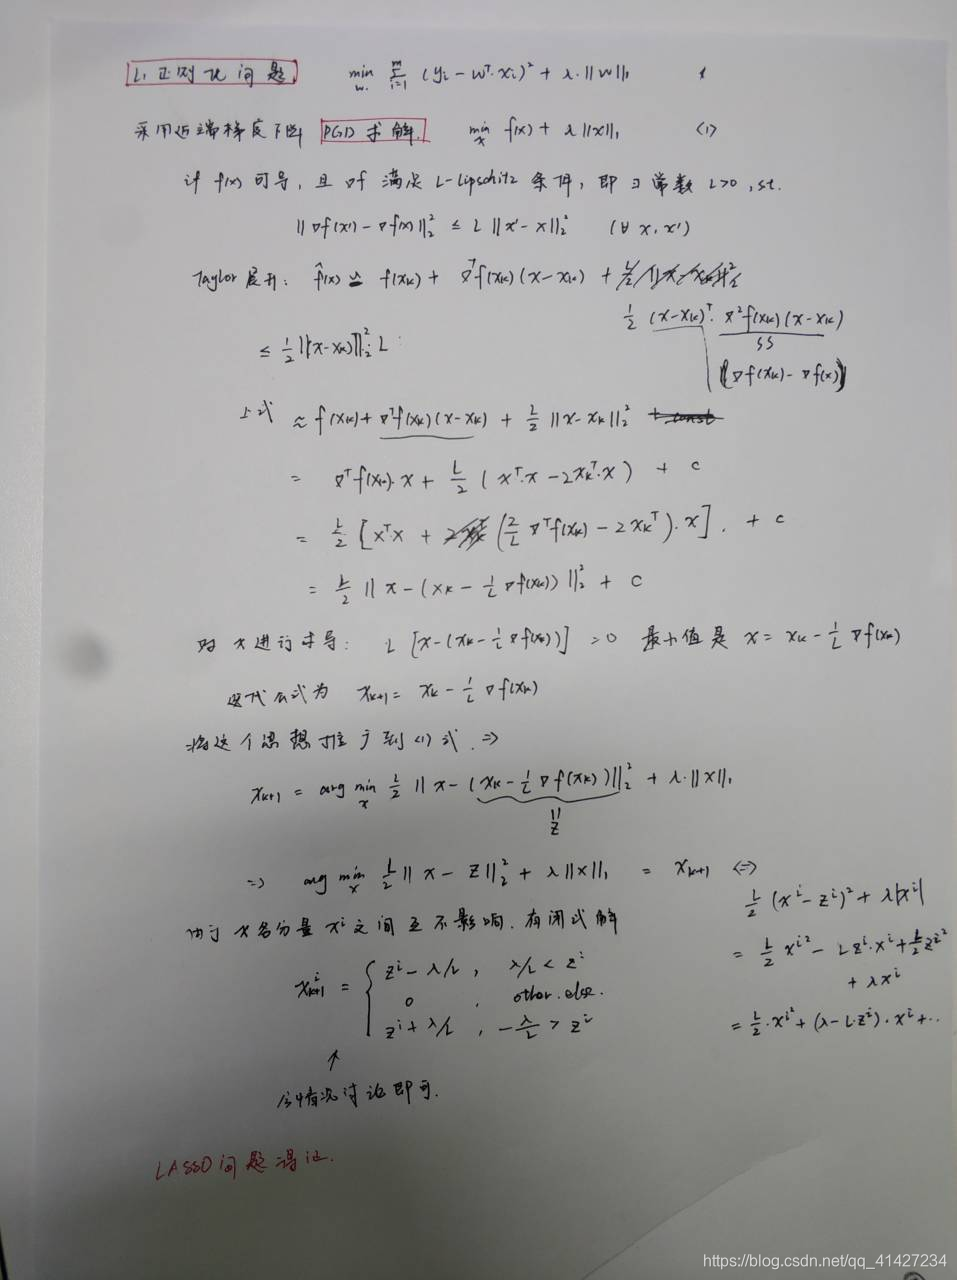 L₁正则化问题 min_w. Σ_{i=1}^m (yᵢ − wᵀ·xᵢ)² + λ·‖w‖₁
采用近端梯度下降 PGD求解. min_x f(x) + λ‖x‖₁ (1)
计 f(x) 可导, 且 ∇f 满足 L-Lipschitz 条件, 即 ∃ 常数 L>0, st.
‖∇f(x') − ∇f(x)‖₂² ≤ L ‖x' − x‖₂² (∀ x, x')
Taylor展开: f̂(x) ≃ f(xₖ) + ∇ᵀf(xₖ)(x − xₖ) +
½ (x−xₖ)ᵀ·∇²f(xₖ)(x−xₖ)
≤ ½‖(x−xₖ)ᵀ‖₂²·L
‖∇f(xₖ) − ∇f(x)‖
上式 ≈ f(xₖ) + ∇ᵀf(xₖ)(x−xₖ) + L/2 ‖x−xₖ‖₂²
= ∇ᵀf(xₖ)·x + L/2 (xᵀ·x − 2xₖᵀ·x) + c
= L/2 [xᵀx + (2/L ∇ᵀf(xₖ) − 2xₖᵀ)·x]. + c
= L/2 ‖x − (xₖ − 1/L ∇f(xₖ))‖₂² + c
对 x 进行求导: L [x−(xₖ−1/L ∇f(xₖ))] = 0 最小值是 x = xₖ − 1/L ∇f(xₖ)
迭代公式为 xₖ₊₁ = xₖ − 1/L ∇f(xₖ)
将这个思想推广到(1)式. ⇒
xₖ₊₁ = arg min_x L/2 ‖x − (xₖ − 1/L ∇f(xₖ))‖₂² + λ·‖x‖₁
‖
z
⇒ arg min_x L/2 ‖x − z‖₂² + λ‖x‖₁ = xₖ₊₁ ⇔
L/2 (xⁱ − zⁱ)² + λ|xⁱ|
由于 x 各分量 xⁱ 之间互不影响. 有闭式解
= L/2 xⁱ² − Lzⁱ·xⁱ + L/2 zⁱ²
+ λxⁱ
= L/2·xⁱ² + (λ − L·zⁱ)·xⁱ + ..
xⁱₖ₊₁ = { zⁱ − λ/L, λ/L < zⁱ
0 , other.else.
zⁱ + λ/L , −λ/L > zⁱ
↑
分情况讨论即可.
LASSO问题得证.
https://blog.csdn.net/qq_41427234